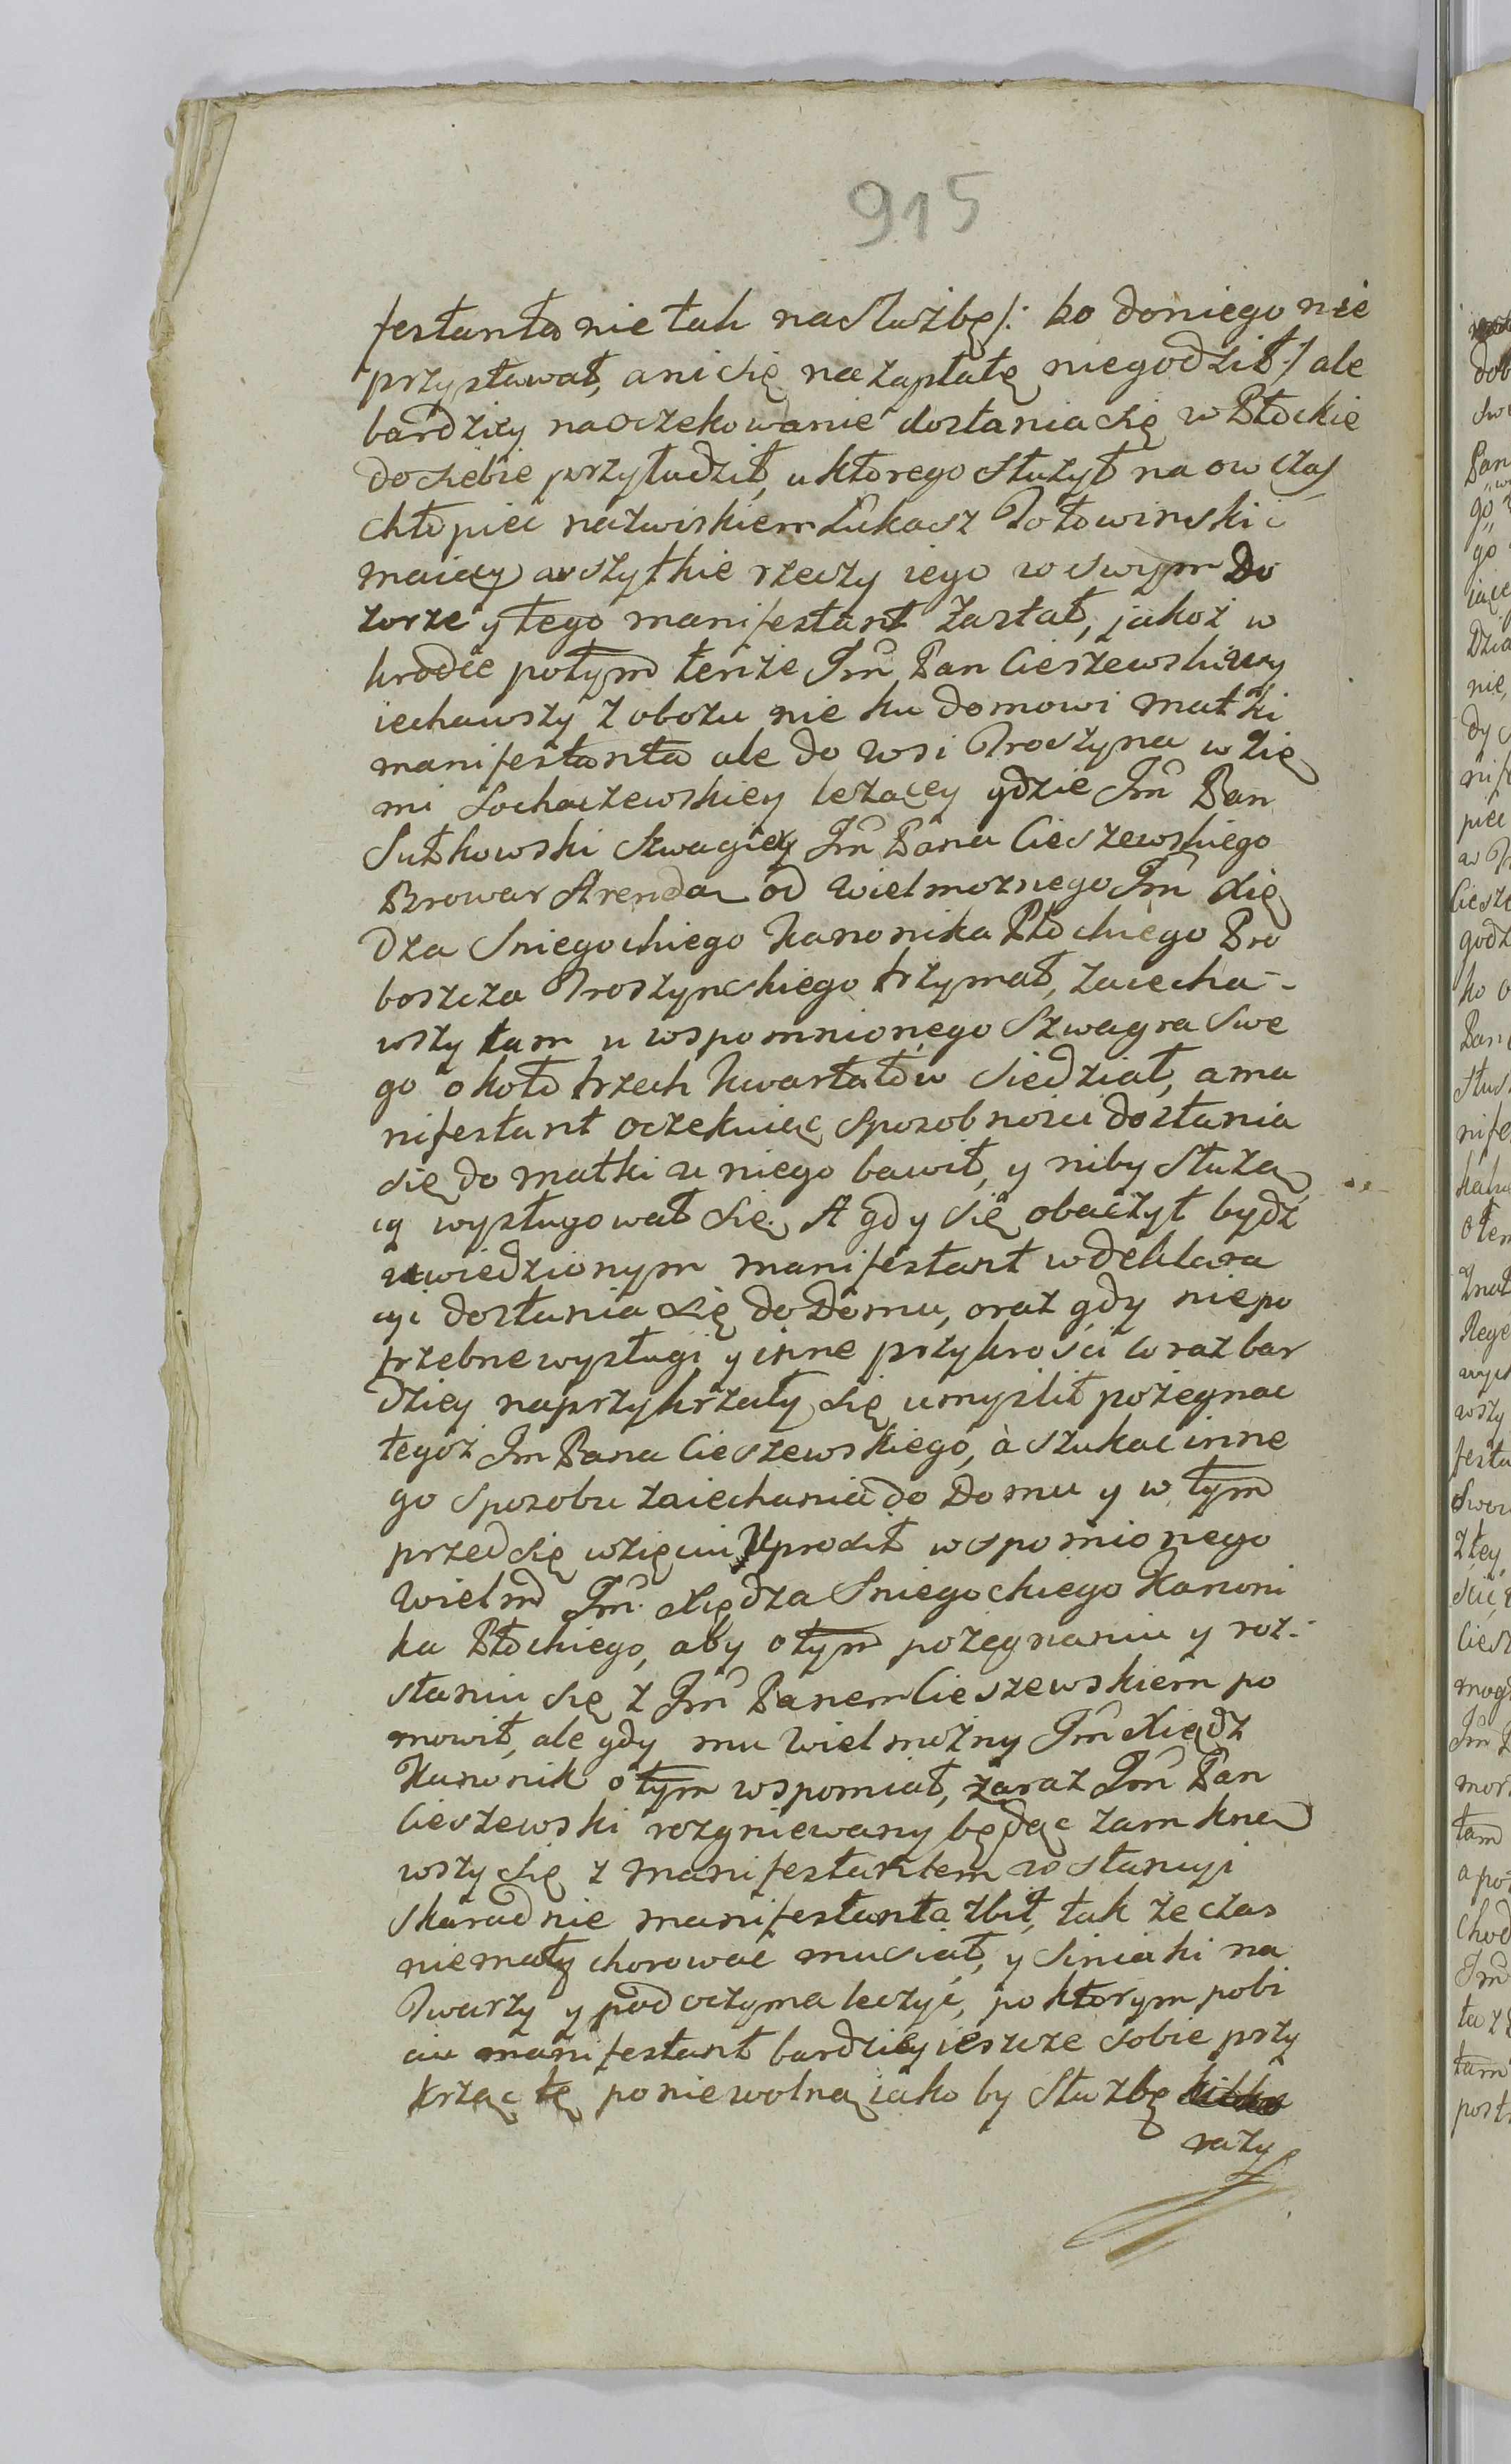 915
festanta nie tak na służbę /: bo do niego nie
przystawał, ani się na zapłatę niegodził :/ ale
bardziey na oczekowanie dostania się w Płockie
do siebie przyłudził, u ktorego służył na ow czas
chłopiec nazwiskiem Łukasz Połowinski
maiący wszytkie rzeczy iego w swoym Do
zorze y tego manifestant zastał, jakoż w
krodce potym tenże Jm̃ Pan Cieszewski wy
iechawszy z obozu nie ku domowi matki
manifestanta ale do wsi Troszyna w Zie
mi Sochaczewskiey leżącey gdzie Jm̃ Pan
Sutkowski Szwagier Jm̃ Pana Cieszewskiego
Browar Arendą od Wielmoznego Jm̃ Xię
dza Sniegockiego Kanonika Płockiego Pro
boszcza Troszynskiego trzymał, zaiecha-
wszy tam u wspomnionego Szwagra Swe
go około trzech kwartałow siedział, a ma
nifestant oczekuiąc sposobnosci dostania
się do matki u niego bawił, y niby służą
cy wysługował się. A gdy się obaczył bydź
uwiedzionym manifestant w deklara
cyi dostania się do Domu, oraz gdy niepo
trzebne wysługi y inne przykrosci coraz bar
dziey naprzykrzały się umyslił pożegnac
tegoż Jm Pana Cieszewskiego, à szukac inne
go sposobu zaiechania do Domu y w tym
przedsię wzięciu Uprosił wspomionego
Wielm̃ Jm̃ Xiędza Sniegockiego Kanoni
ka Płockiego, aby o tym pożegnaniu y roz-
staniu się z Jm̃ Panem Cieszewskiem po
mowił, ale gdy mu Wielmożny Jm̃ Xiądz
Kanonik o tym wspomiał, zaraz Jm̃ Pan
Cieszewski rozgniewany będąc zamkną
wszy się z manifestantem w stancyi
skaradnie manifestanta zbił, tak że czas
niemały chorowac musiał, y siniaki na
Twarzy y pod oczyma leczyć, po ktorym pobi
ciu manifestant bardziey ieszcze sobie przy
krząc tę poniewolną iako by służbę
razy